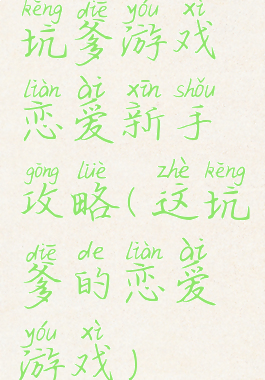 kēng diē yóu xì
坑爹游戏
liàn ài xīn shǒu
恋爱新手
gōng lüè zhè kēng
攻略(这坑
diē de liàn ài
爹的恋爱
yóu xì
游戏)